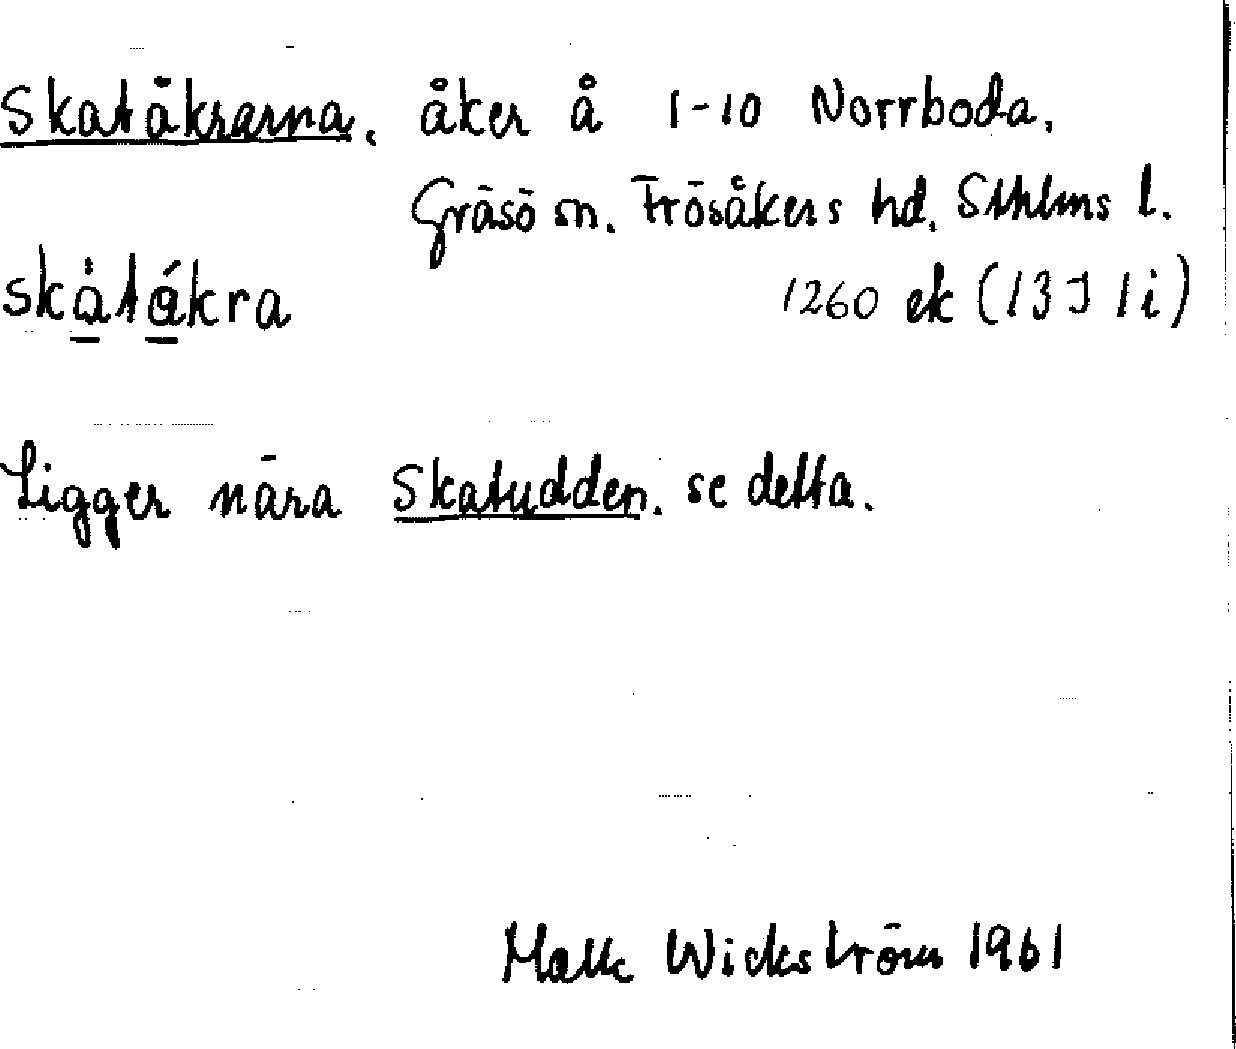 Skatåkrarna, åker å 1-10 Norrboda,
Gräsö sn. Frösåkers hd, Sthlms l.
skàtákra 1260 ek (13 I 1i)
Ligger nära Skatudden. se detta.
Wickström 1961